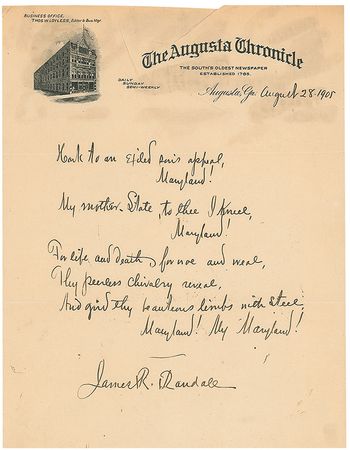 BUSINESS OFFICE,
THOS. W. LOYLESS, Editor & Bus. Mgr.
The Augusta Chronicle
THE SOUTH'S OLDEST NEWSPAPER
ESTABLISHED 1785.
DAILY
SUNDAY
SEMI-WEEKLY
Augusta, Ga. August 28. 1905
Hark to an exiled son's appeal,
Maryland!
My mother-State, to thee I kneel,
Maryland!
For life and death, for woe and weal,
Thy peerless chivalry reveal,
And gird thy beauteous limbs with steel,
Maryland! My Maryland!
James R. Randall